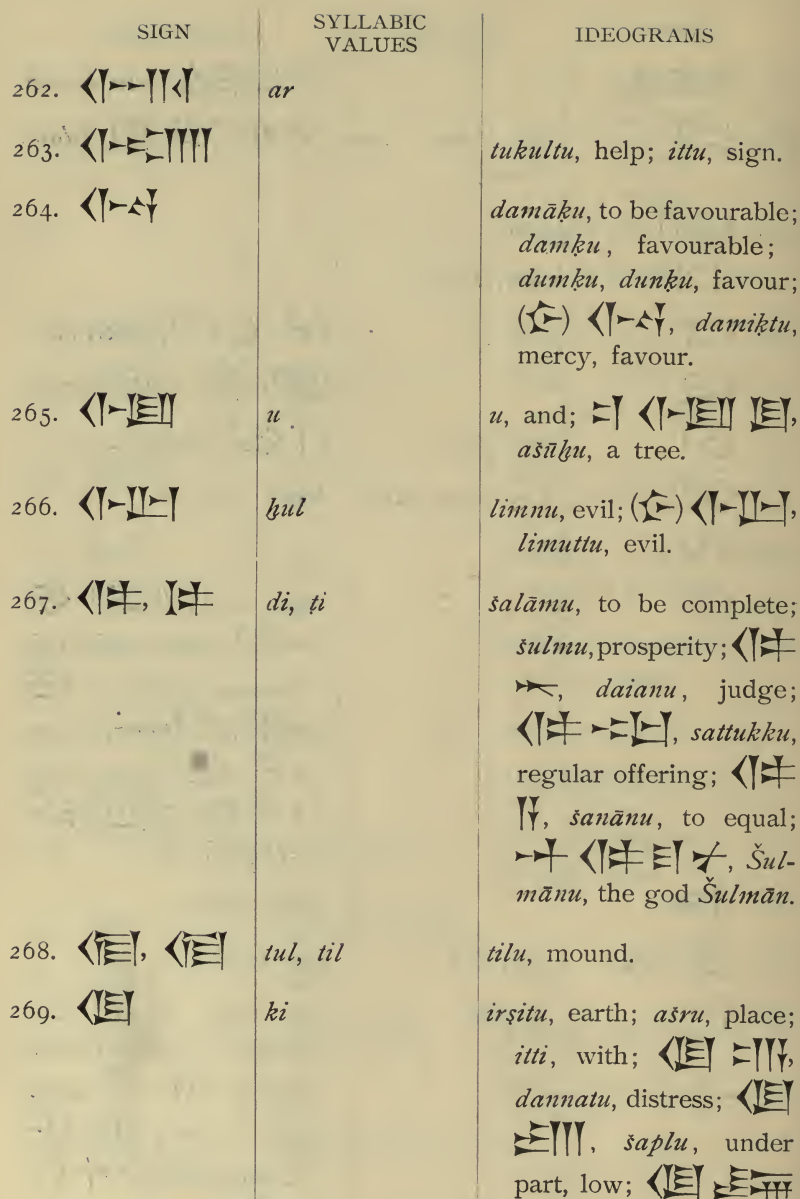 SIGN
SYLLABIC
VALUES
IDEOGRAMS
262. 𒅈 ar
263. tukultu, help; ittu, sign.
264. damāḳu, to be favourable;
damḳu, favourable;
dumḳu, dunḳu, favour;
( ) , damiḳtu,
mercy, favour.
265. 𒅇 u u, and; 𒄑 𒅇 𒆪,
ašūḫu, a tree.
266. ḫul limnu, evil; ( ) ,
limuttu, evil.
267. 𒁲, di, ṭi šalāmu, to be complete;
šulmu, prosperity; 𒁲
𒋻, daianu, judge;
𒁲 , sattukku,
regular offering; 𒁲
, šanānu, to equal;
𒀭 𒁲 𒈠 𒉡, Šul-
mānu, the god Šulmān.
268. tul, til tilu, mound.
269. 𒆠 ki irṣitu, earth; ašru, place;
itti, with; 𒆠 ,
dannatu, distress; 𒆠
, šaplu, under
part, low; 𒆠